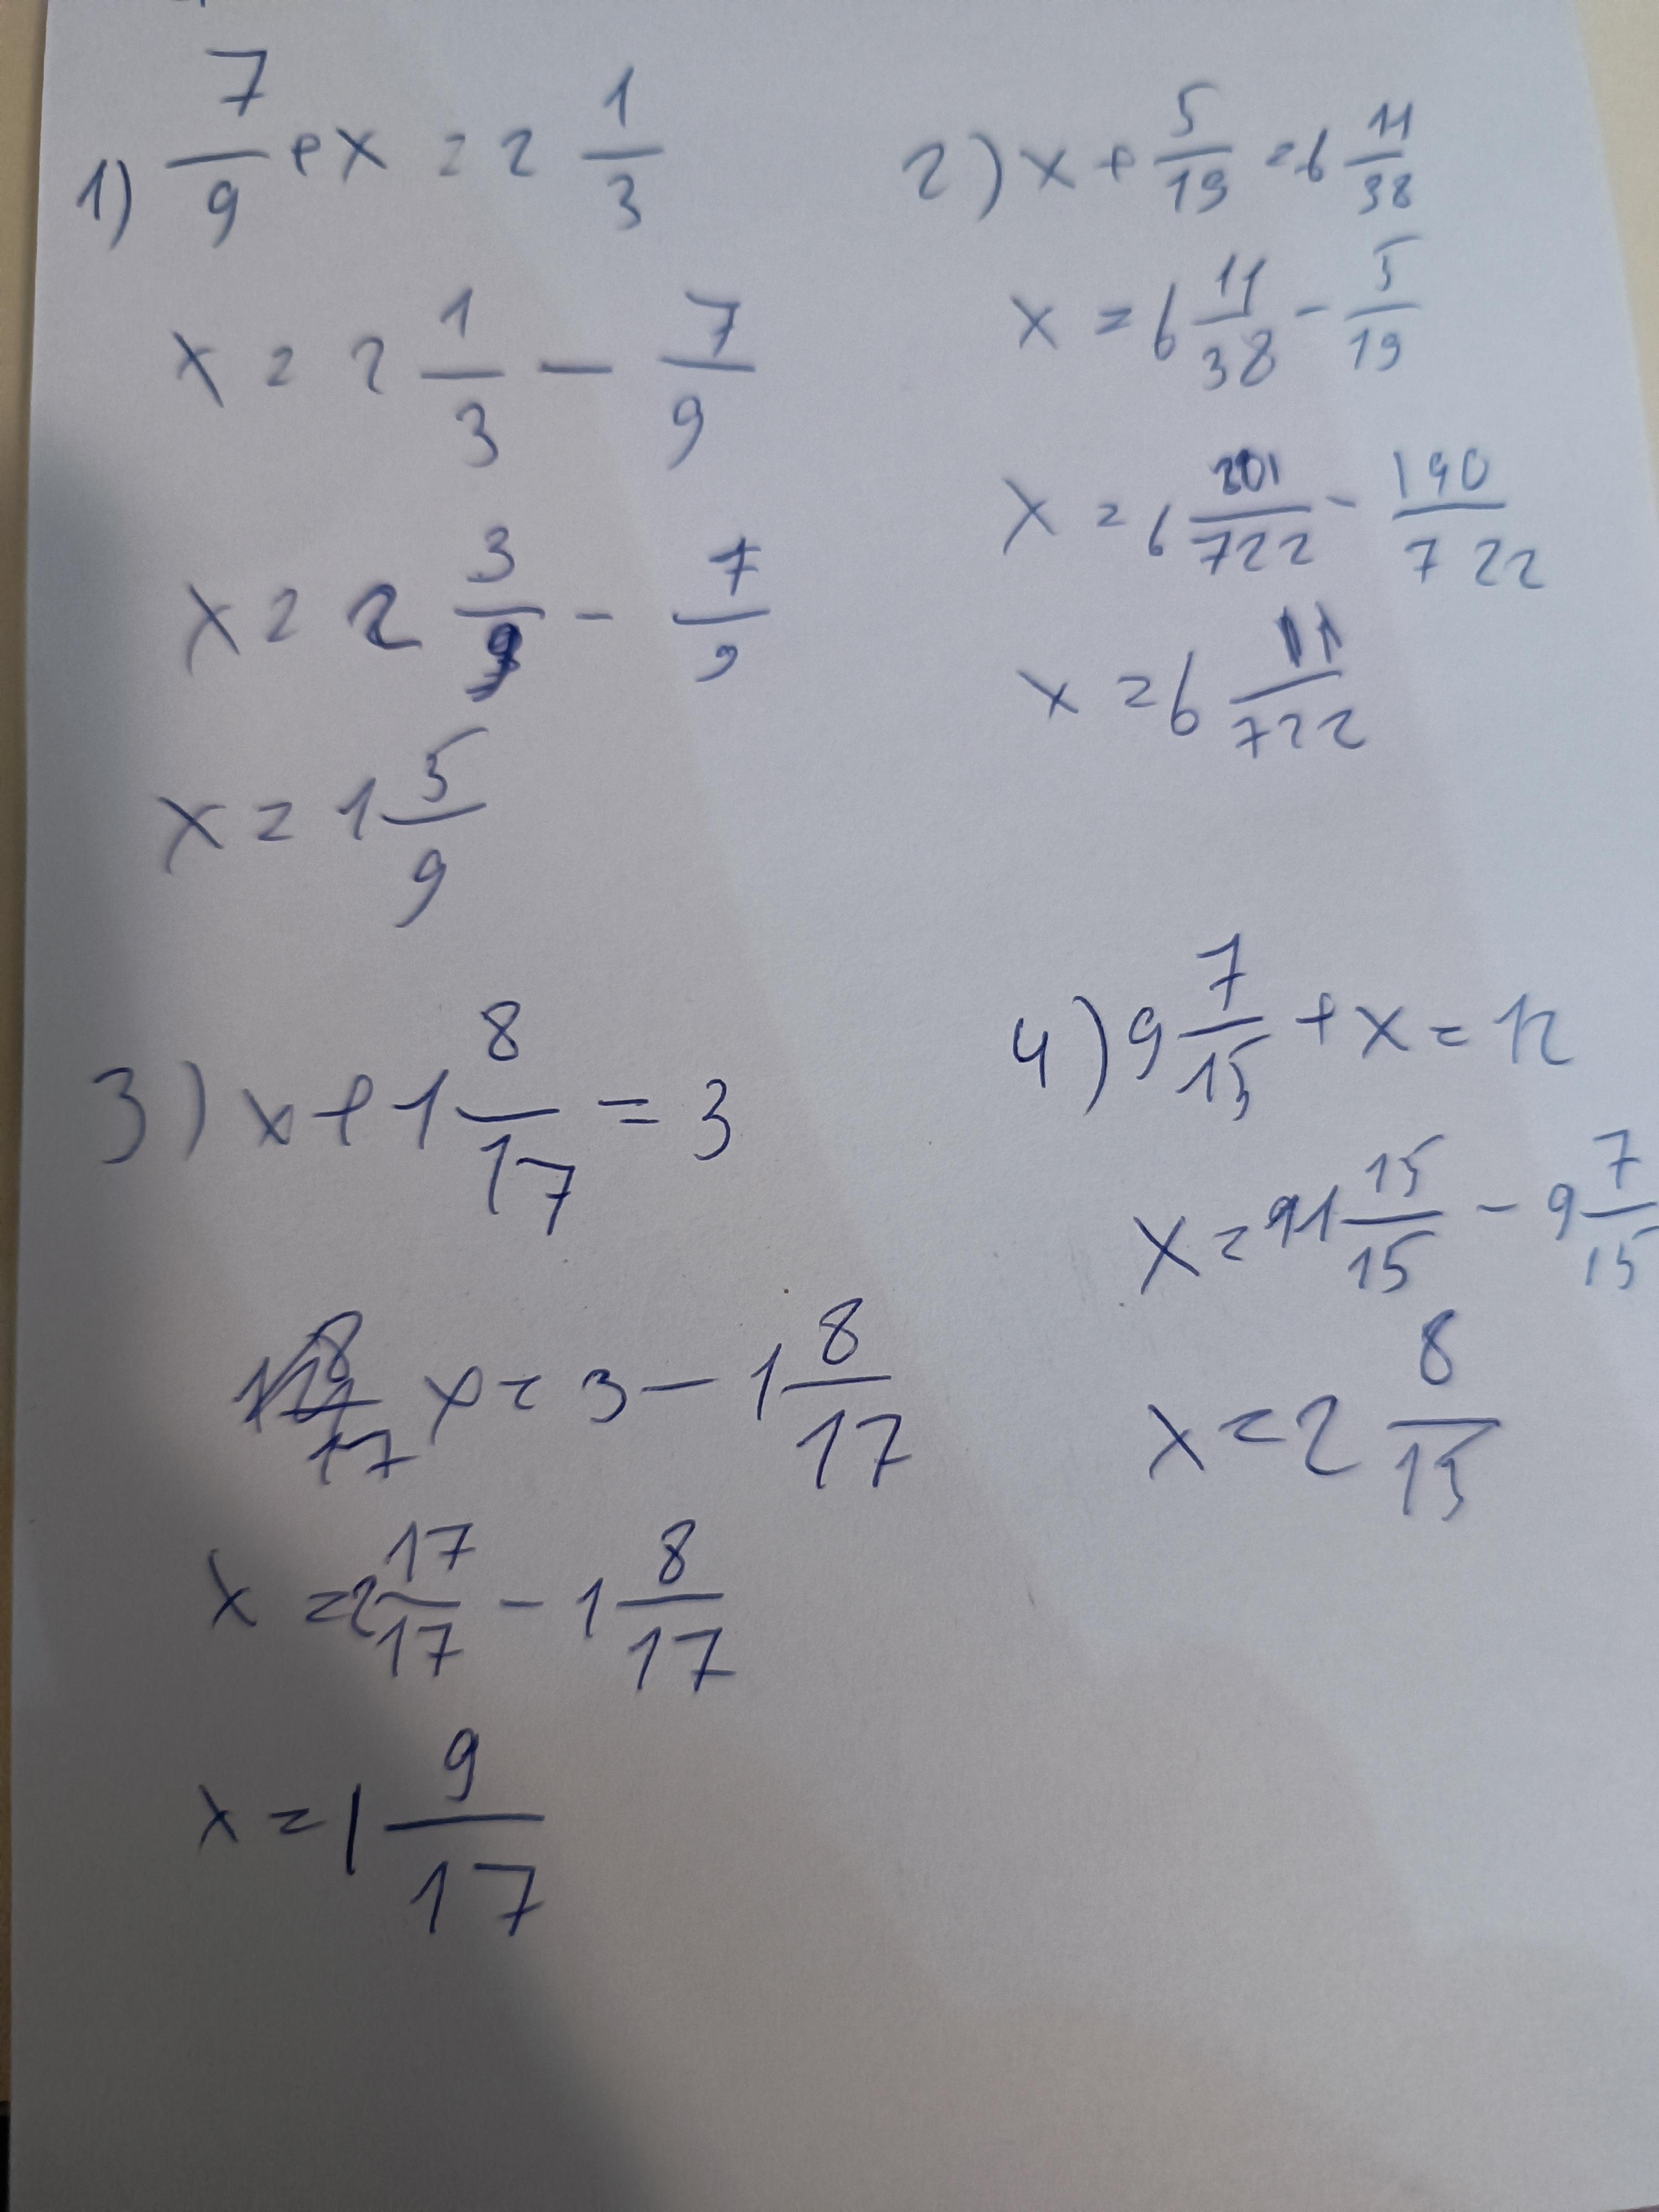 1) 7/9 + x = 2 1/3
x = 2 1/3 - 7/9
x = 2 3/9 - 7/9
x = 1 5/9
2) x + 5/19 = 6 11/38
x = 6 11/38 - 5/19
x = 6 201/722 - 190/722
x = 6 11/722
3) x + 1 8/17 = 3
x = 3 - 1 8/17
x = 2 17/17 - 1 8/17
x = 1 9/17
4) 9 7/15 + x = 12
x = 11 15/15 - 9 7/15
x = 2 8/15